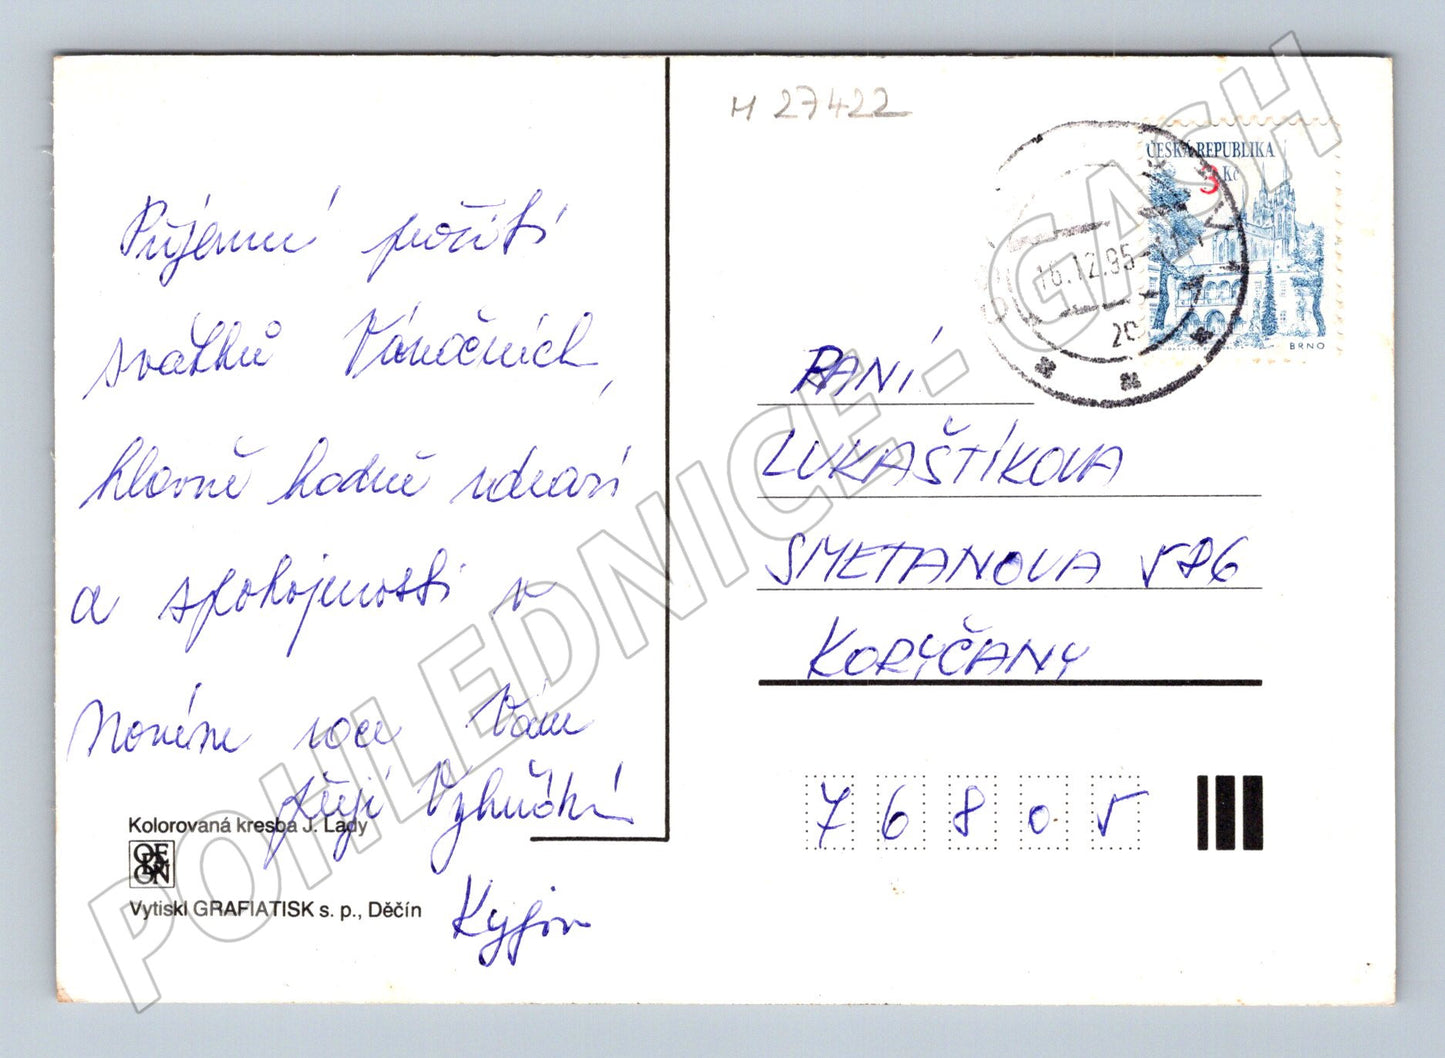 Příjemné prožití
svátků Vánočních,
hlavně hodně zdraví
a spokojenosti v
Novém roce Vám
přejí
Kyjov
Kolorovaná kresba J. Lady
ODEON
Vytiskl GRAFIATISK s. p., Děčín
M 27422
ČESKÁ REPUBLIKA
3 Kč
BRNO
16.12.95
PANÍ
LUKAŠTÍKOVA
SMETANOVA 586
KORYČANY
76805
POHLEDNICE - GASH